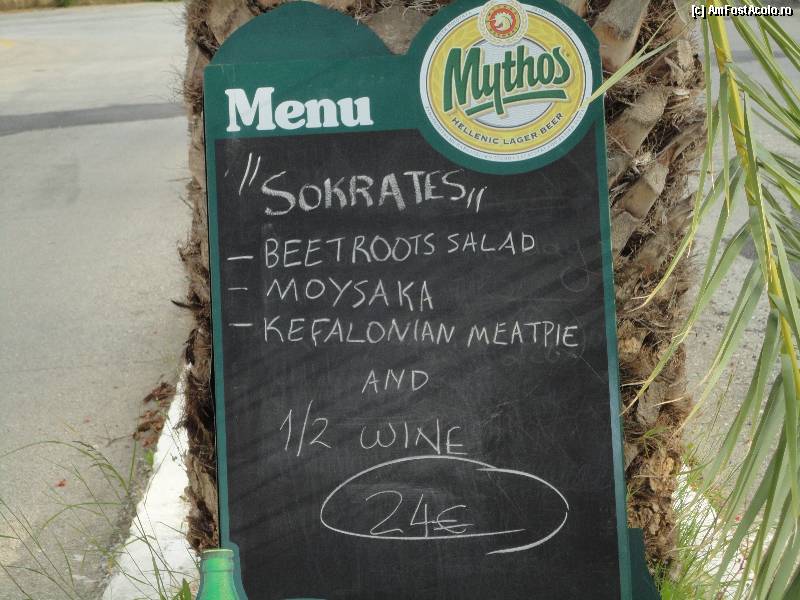 (c) AmFostAcolo.ro
Menu
Mythos
HELLENIC LAGER BEER
"SOKRATES"
- BEETROOTS SALAD
- MOYSAKA
- KEFALONIAN MEATPIE
AND
1/2 WINE
24€